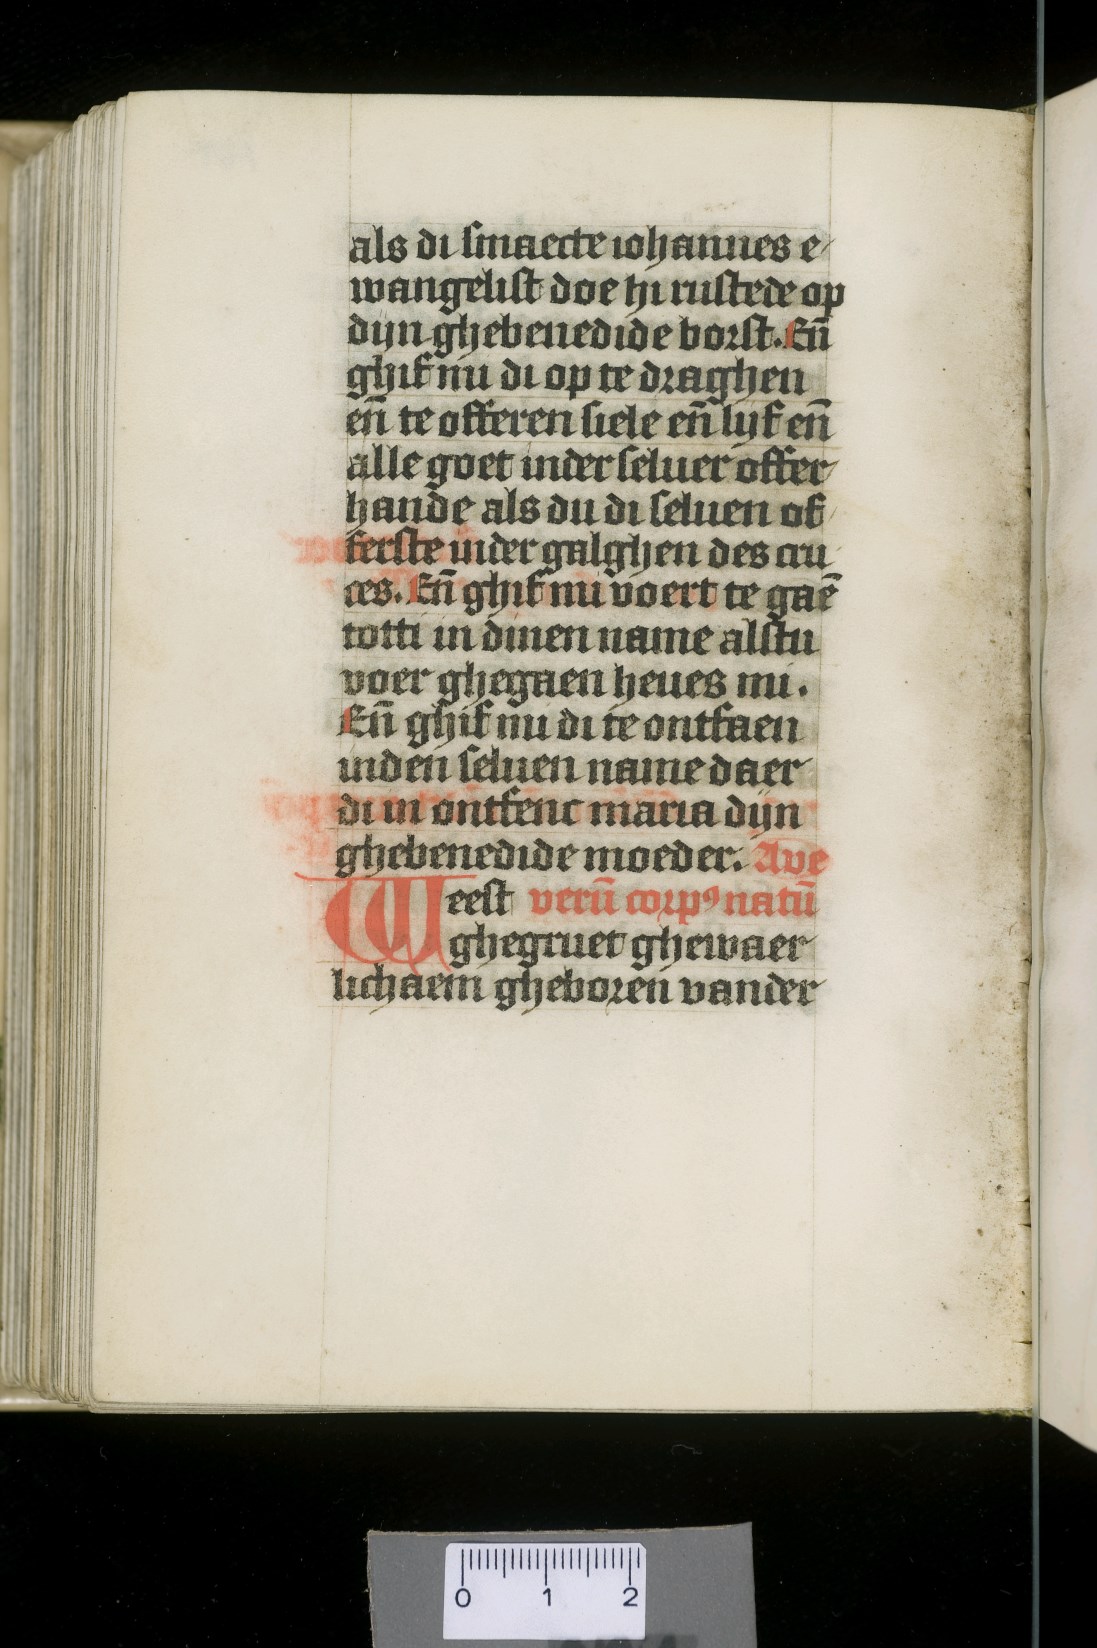 als di smaecte iohannes e
wangelist doe hi rustede op
dijn ghebenedide borst. Eñ
ghif mi di op te draghen
eñ te offeren siele eñ lijf eñ
alle goet inder seluer offer
hande als du di seluen of
ferste inder galghen des cru
ces. Eñ ghif mi voert te gaē
totti in dinen name alstu
voer ghegaen heues mi.
Eñ ghif mi di te ontfaen
inden seluen name daer
di in ontfenc maria dijn
ghebenedide moeder. Ave
Weest verū corpꝰ natū
ghegruet ghewaer
lichaem gheboren vander
0 1 2